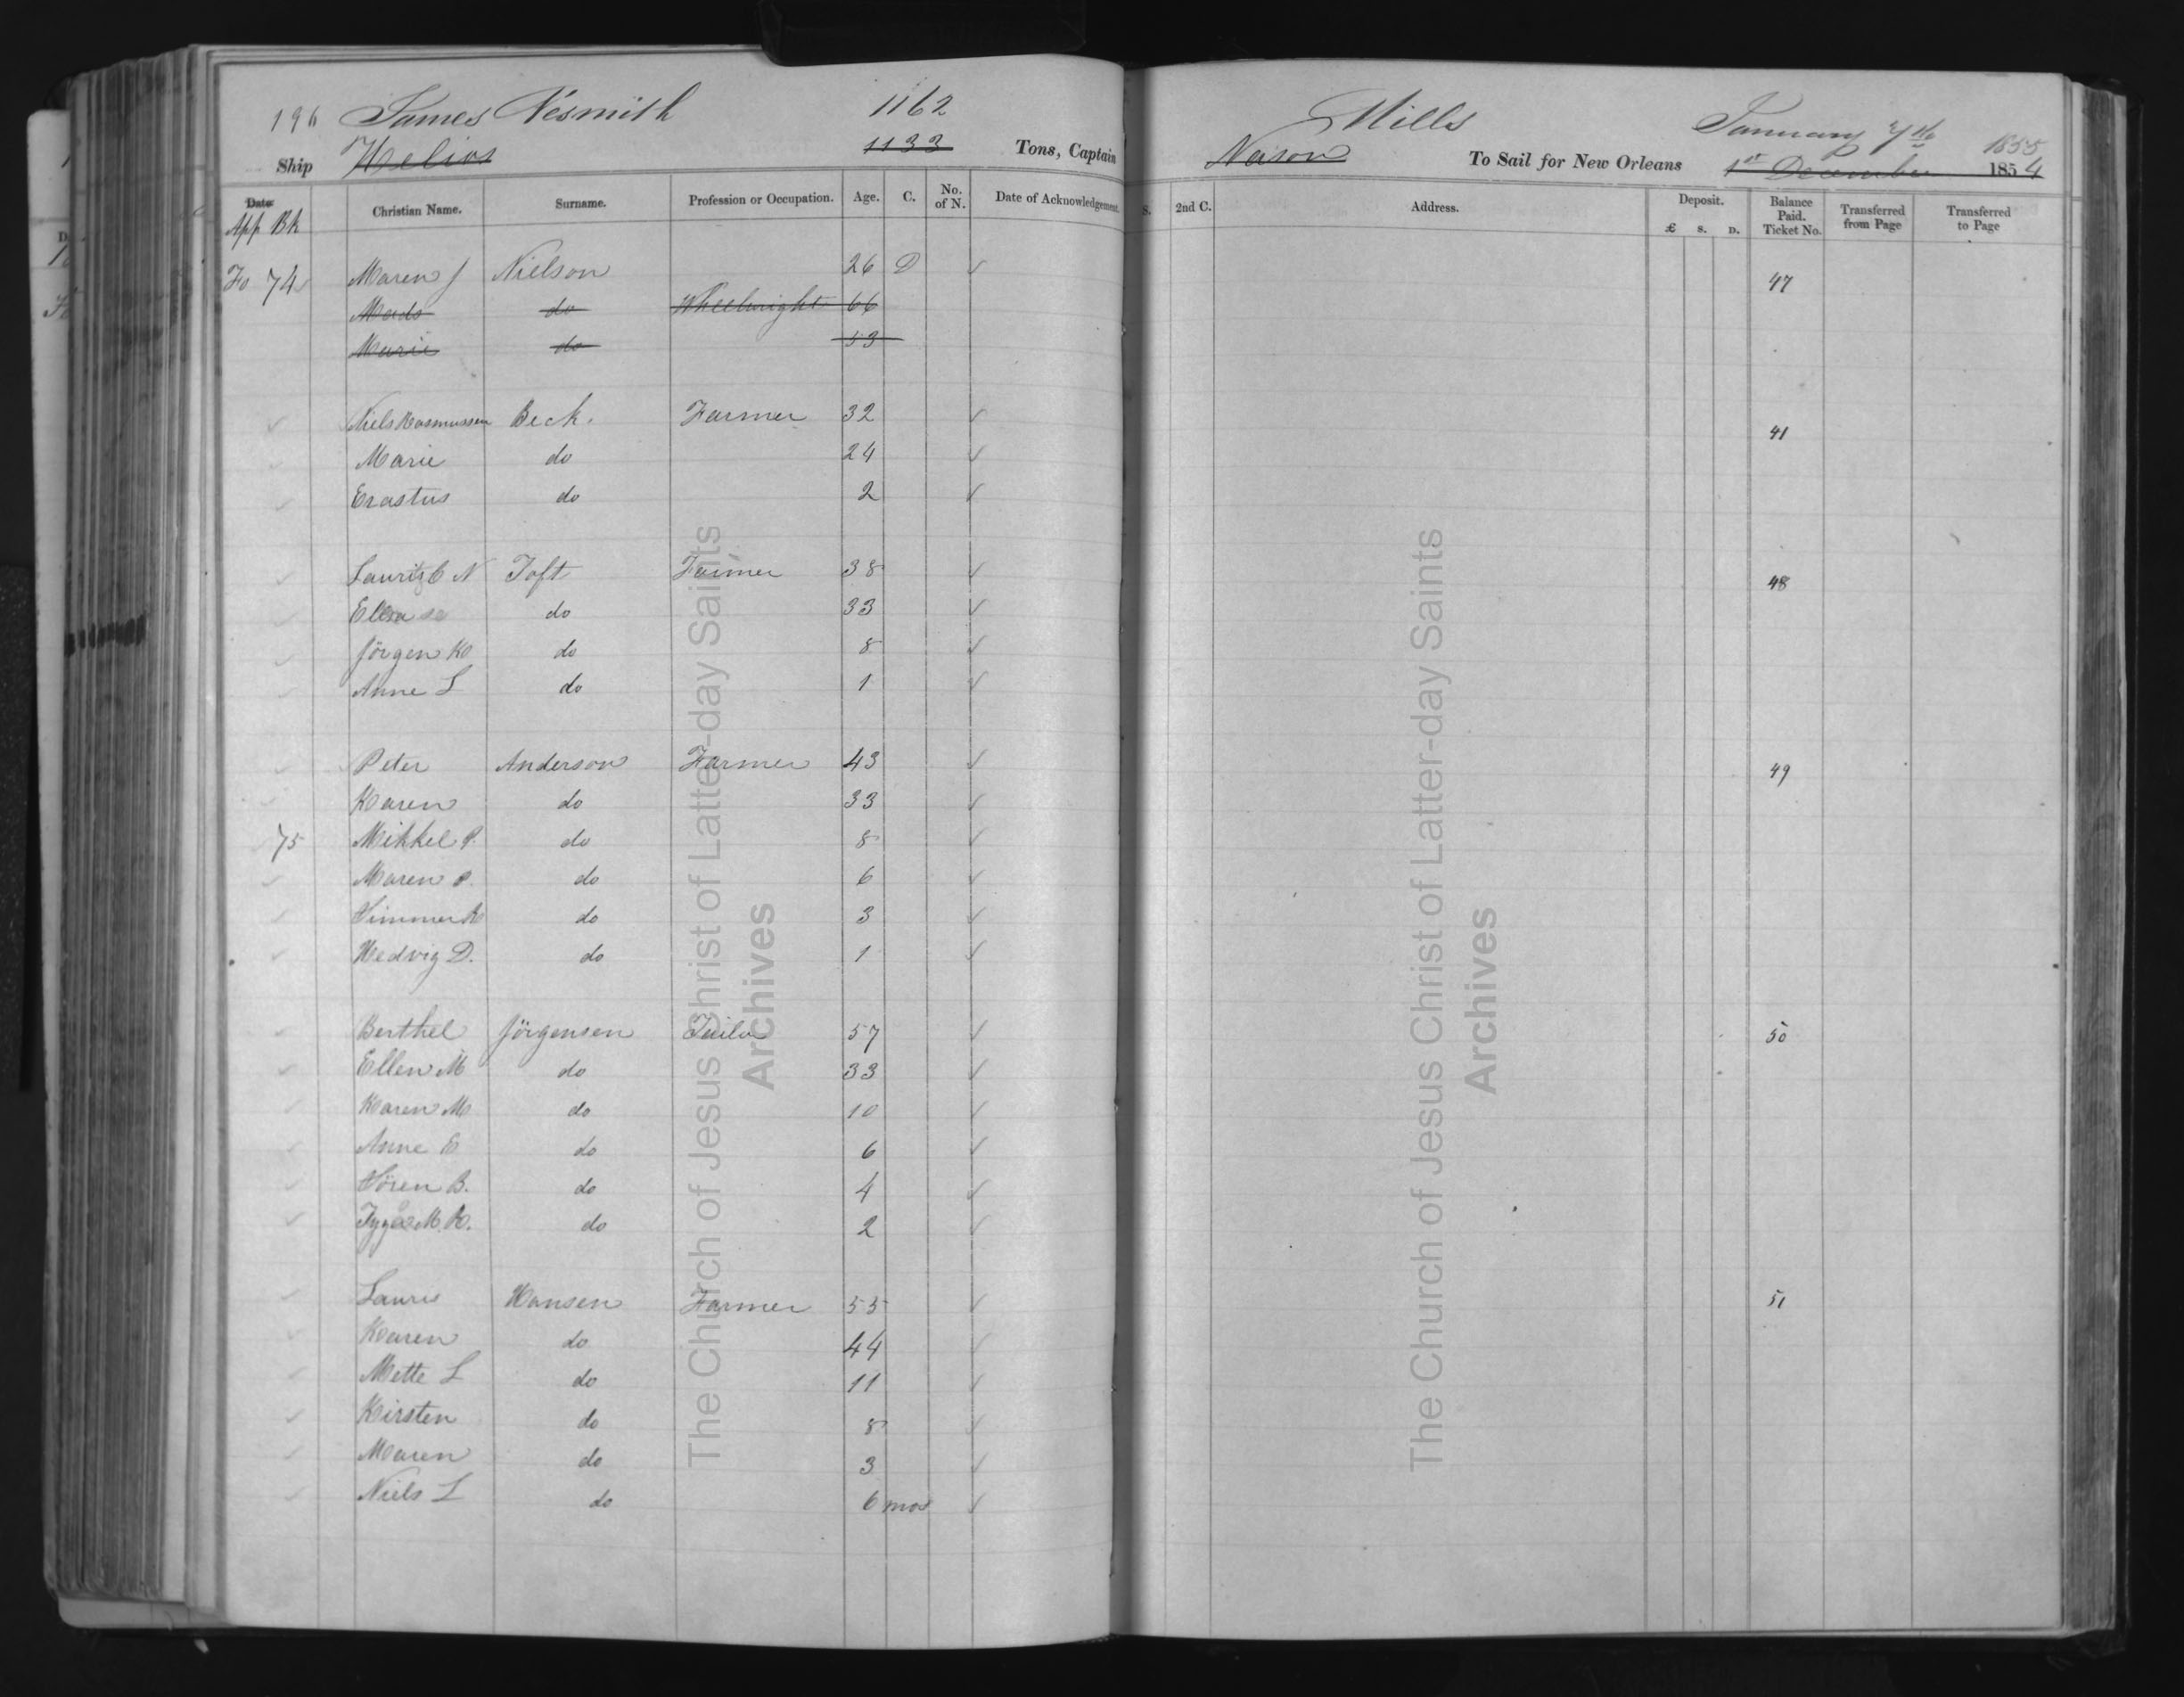 196 James Nesmith 1162 Mills January 7th 1855
Ship Helios 1133 Tons, Captain Nason To Sail for New Orleans 1st December 1854
Date Christian Name. Surname. Profession or Occupation. Age. C. No. of N. Date of Acknowledgement. S. 2nd C. Address. Deposit. £ S. D. Balance Paid. Ticket No. Transferred from Page Transferred to Page
App Bk
Fo 74 Maren J Nielson 26 D ✓ 47
Mads do Wheelwright 66
Marie do 53
✓ Niels Rasmussen Beck. Farmer 32 ✓ 41
✓ Marie do 24 ✓
✓ Erastus do 2 ✓
✓ Lauritz C N Toft Farmer 38 ✓ 48
✓ Ellen do 33 ✓
✓ Jörgen K do 8 ✓
✓ Anne L do 1 ✓
✓ Peter Anderson Farmer 43 ✓ 49
✓ Karen do 33 ✓
75 Mikkel P. do 8 ✓
✓ Maren P. do 6 ✓
✓ Simmer K do 3 ✓
✓ Hedvig D. do 1 ✓
✓ Berthel Jörgensen Tailor 57 ✓ 50
✓ Ellen M do 33 ✓
✓ Karen M do 10 ✓
✓ Anne E do 6 ✓
✓ Sören B. do 4 ✓
✓ M. K. do 2 ✓
✓ Laurs Hansen Farmer 55 ✓ 51
✓ Karen do 44 ✓
✓ Mette L do 11 ✓
✓ Kirsten do 8 ✓
✓ Maren do 3 ✓
✓ Niels L do 6 mos ✓
The Church of Jesus Christ of Latter-day Saints
Archives
The Church of Jesus Christ of Latter-day Saints
Archives